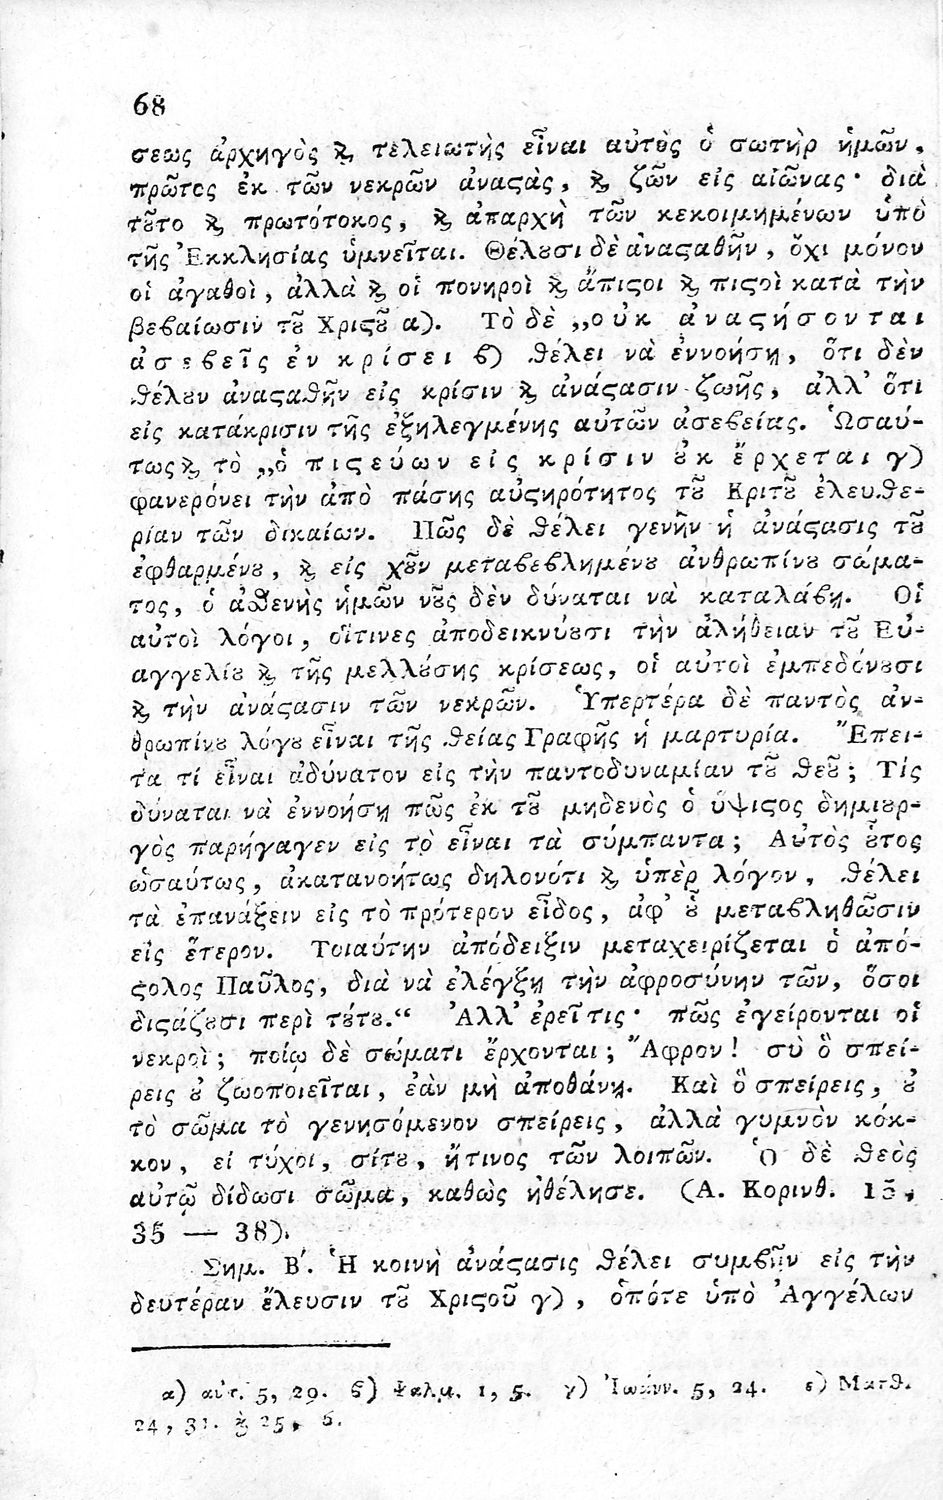 68
σεως ἀρχηγὸς ϗ τελειωτὴς εἶναι αὐτὸς ὁ σωτὴρ ἡμῶν,
πρῶτος ἐκ τῶν νεκρῶν ἀναϛὰς, ϗ ζῶν εἰς αἰῶνας· διὰ
τȣ͂το ϗ πρωτότοκος, ϗ ἀπαρχὴ τῶν κεκοιμημένων ὑπὸ
τῆς Ἐκκλησίας ὑμνεῖται. Θέλȣσι δὲ ἀναϛαθῆν, ὄχι μόνον
οἱ ἀγαθοὶ, ἀλλὰ ϗ οἱ πονηροὶ ϗ ἄπιϛοι ϗ πιϛοὶ κατὰ τὴν
βεβαίωσιν τȣ͂ Χριϛȣ͂ α). Τὸ δὲ „οὐκ ἀναϛήσονται
ἀσεβεῖς ἐν κρίσει ϐ) ϑέλει νὰ ἐννοήσῃ, ὅτι δὲν
ϑέλȣν ἀναϛαϑῆν εἰς κρίσιν ϗ ἀνάϛασιν ζωῆς, ἀλλ’ ὅτι
εἰς κατάκρισιν τῆς ἐξηλεγμένης αὐτῶν ἀσεϐείας. Ὡσαύ-
τως ϗ τὸ „ὁ πιϛεύων εἰς κρίσιν ȣ̓κ ἔρχεται γ)
φανερόνει τὴν ἀπὸ πάσης αὐϛηρότητος τȣ͂ Κριτȣ͂ ἐλευϑε-
ρίαν τῶν δικαίων. Πῶς δὲ ϑέλει γενῆν ἡ ἀνάϛασις τȣ͂
ἐφθαρμένȣ, ϗ εἰς χȣ͂ν μεταϐεϐλημένȣ ἀνθρωπίνȣ σώμα-
τος, ὁ ἀσθενὴς ἡμῶν νȣ͂ς δὲν δύναται νὰ καταλάϐῃ. Οἱ
αὐτοὶ λόγοι, οἵτινες ἀποδεικνύȣσι τὴν ἀλήθειαν τȣ͂ Εὐ-
αγγελίȣ ϗ τῆς μελλȣ́σης κρίσεως, οἱ αὐτοὶ ἐμπεδόνȣσι
ϗ τὴν ἀνάϛασιν τῶν νεκρῶν. Ὑπερτέρα δὲ παντὸς ἀν-
θρωπίνȣ λόγȣ εἶναι τῆς ϑείας Γραφῆς ἡ μαρτυρία. Ἔπει-
τα τί εἶναι ἀδύνατον εἰς τὴν παντοδυναμίαν τȣ͂ ϑεȣ͂; Τίς
δύναται νὰ ἐννοήσῃ πῶς ἐκ τȣ͂ μηδενὸς ὁ ὕψιϛος δημιȣρ-
γὸς παρήγαγεν εἰς τὸ εἶναι τὰ σύμπαντα; Αὐτὸς ȣ̓͂τος
ὡσαύτως, ἀκατανοήτως δηλονότι ϗ ὑπὲρ λόγον, ϑέλει
τὰ ἐπανάξειν εἰς τὸ πρότερον εἶδος, ἀφ’ ȣ̔͂ μεταϐληθῶσιν
εἰς ἕτερον. Τοιαύτην ἀπόδειξιν μεταχειρίζεται ὁ ἀπό-
ϛολος Παῦλος, διὰ νὰ ἐλέγξῃ τὴν ἀφροσύνην τῶν, ὅσοι
διϛάζȣσι περὶ τȣ́τȣ.“ Ἀλλ’ ἐρεῖ τις· πῶς ἐγείρονται οἱ
νεκροὶ; ποίῳ δὲ σώματι ἔρχονται; Ἄφρον! σὺ ὃ σπεί-
ρεις ȣ̓ ζωοποιεῖται, ἐὰν μὴ ἀποθάνῃ. Καὶ ὃ σπείρεις, ȣ̓
τὸ σῶμα τὸ γενησόμενον σπείρεις, ἀλλὰ γυμνὸν κόκ-
κον, εἰ τύχοι, σίτȣ, ἤ τινος τῶν λοιπῶν. Ὁ δὲ ϑεὸς
αὐτῷ δίδωσι σῶμα, καθὼς ἠθέλησε. (Α. Κορινθ. 15,
35 — 38).
Σημ. Β΄. Ἡ κοινὴ ἀνάϛασις ϑέλει συμϐῆν εἰς τὴν
δευτέραν ἔλευσιν τȣ͂ Χριϛοῦ γ), ὁπότε ὑπὸ Ἀγγέλων
α) αὐτ. 5, 29. ϐ) Ψαλμ. 1, 5. γ) Ἰωάνν. 5, 24. ε) Ματϑ.
24, 31. ϗ 25, 6.